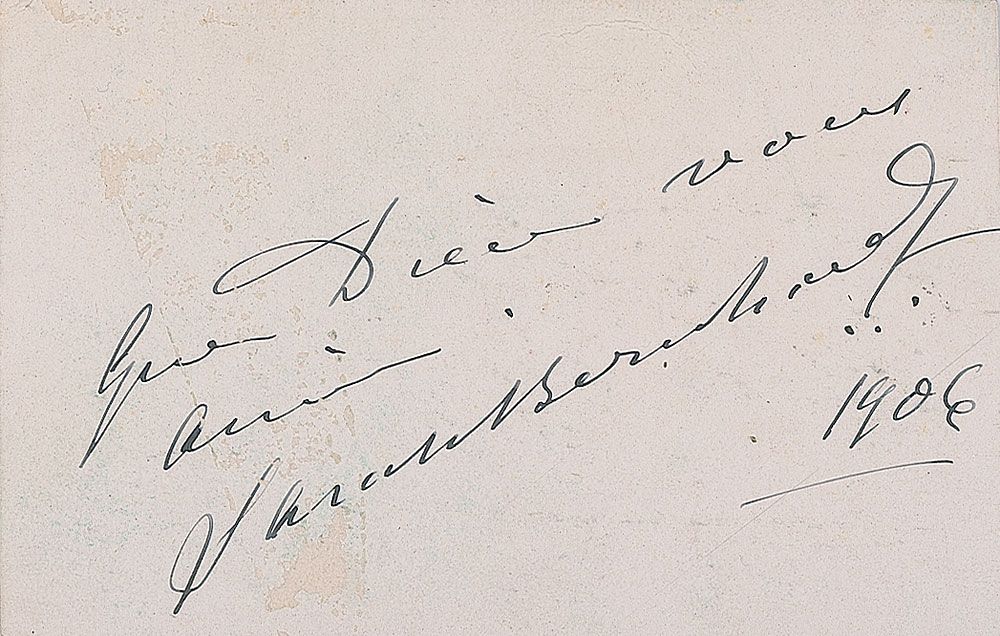 Que Dieu vous
aime.
Sarah Bernhardt
1906